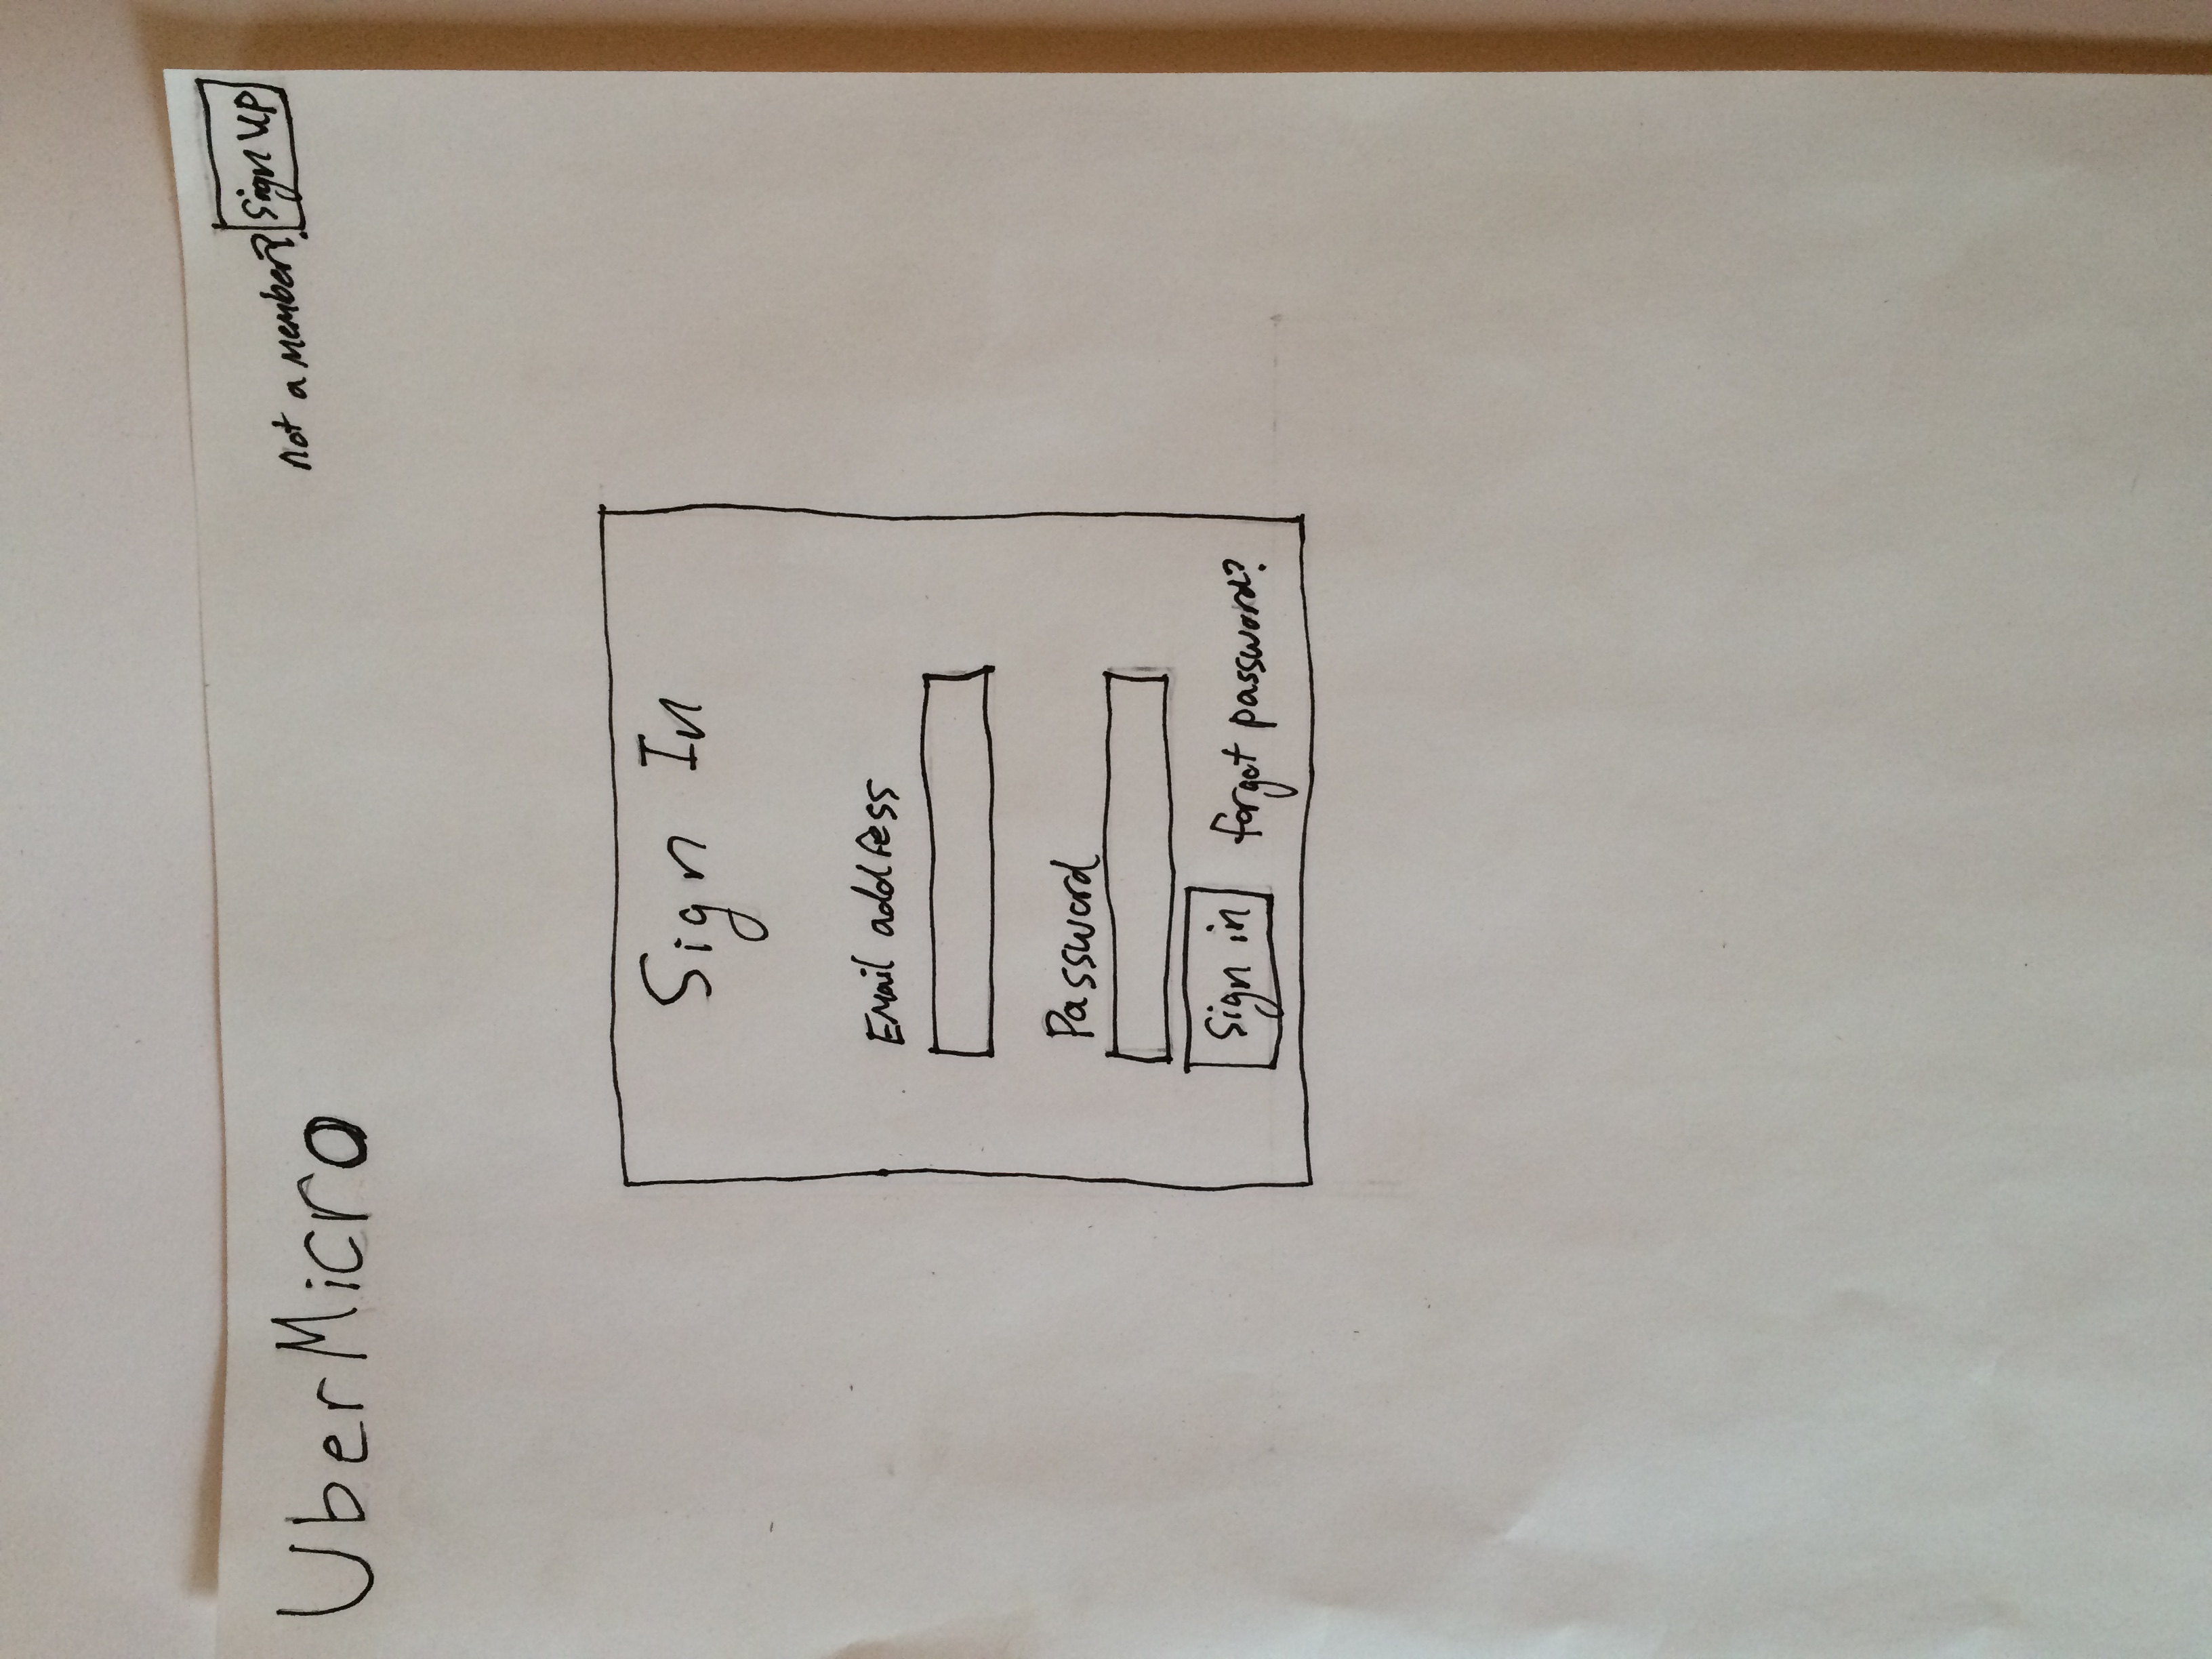 UberMicro
not a member? Sign up
Sign In
Email address
Password
Sign in forgot password?